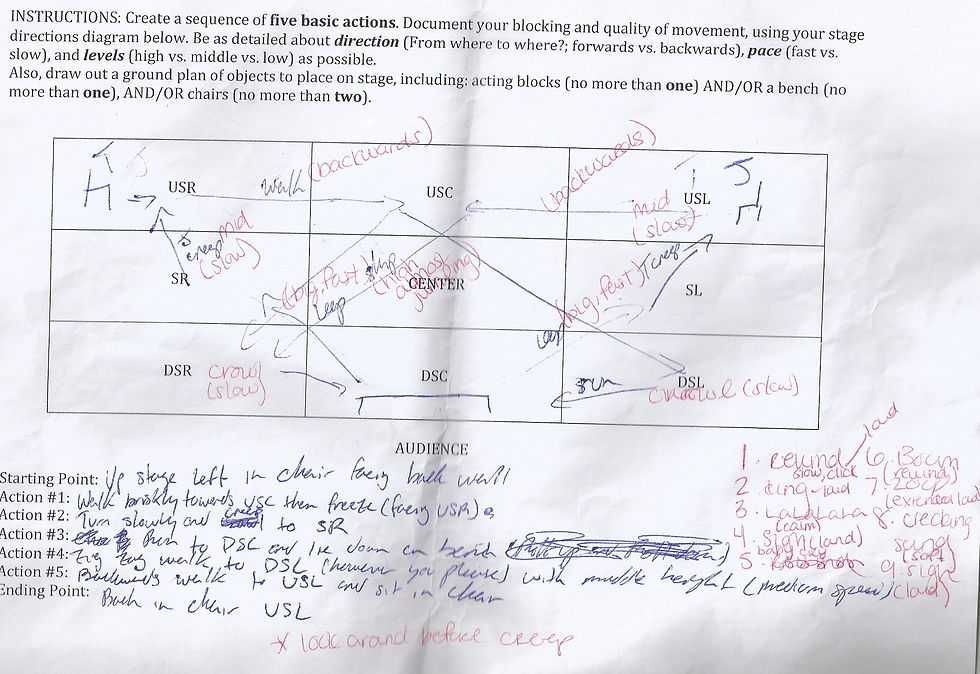 INSTRUCTIONS: Create a sequence of five basic actions. Document your blocking and quality of movement, using your stage
directions diagram below. Be as detailed about direction (From where to where?; forwards vs. backwards), pace (fast vs.
slow), and levels (high vs. middle vs. low) as possible.
Also, draw out a ground plan of objects to place on stage, including: acting blocks (no more than one) AND/OR a bench (no
more than one), AND/OR chairs (no more than two).
USR
walk
(backwards)
USC
(backwards)
mid
(slow)
USL
J
creep
mid
(slow)
SR
(big, fast)
(high
almost
jumping)
CENTER
leep
(big, fast)
creep
SL
DSR
crawl
(slow)
DSC
run
DSL
(slow)
AUDIENCE
Starting Point: Up stage left in chair facing back wall
Action #1: Walk briskly towards USC then freeze (facing USR)
Action #2: Turn slowly and creep to SR
Action #3: Run to DSC and lie down on bench
Action #4: Zig Zag walk to DSL (however you please) with middle height (medium speed)
Action #5: Backwards walk to USL and sit in chair
Ending Point: Back in chair USL
* look around before creep
1. rewind loud
slow, click
2. ring - loud
3. Lalalala
(calm)
4. Sigh (loud)
baby cry
5.
6. Boom
(rewind)
7.
(extended loud)
8.
sound
(soft)
9. sigh
(loud)